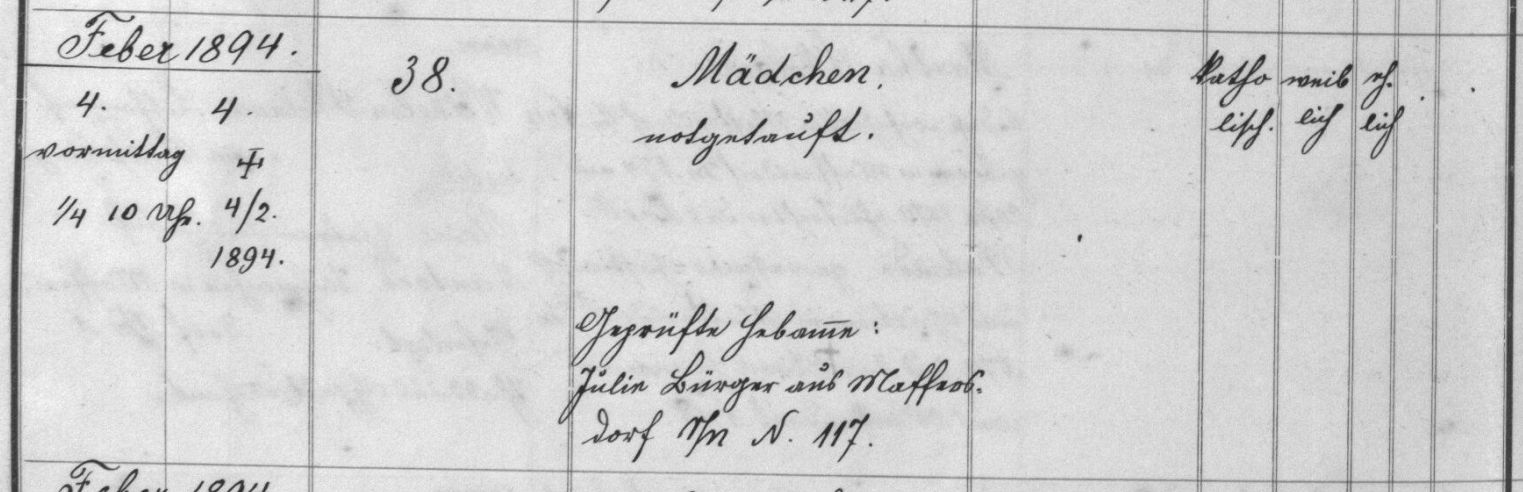 Feber 1894.
4. 4.
vormittag +
1/4 10 Uhr. 4/2.
1894.
38.
Mädchen,
notgetauft.
Geprüfte Hebam̅e:
Julie Bürger aus Maffers-
dorf N. 117.
katho
lisch.
weib
lich
eh-
lich
Feber 1894